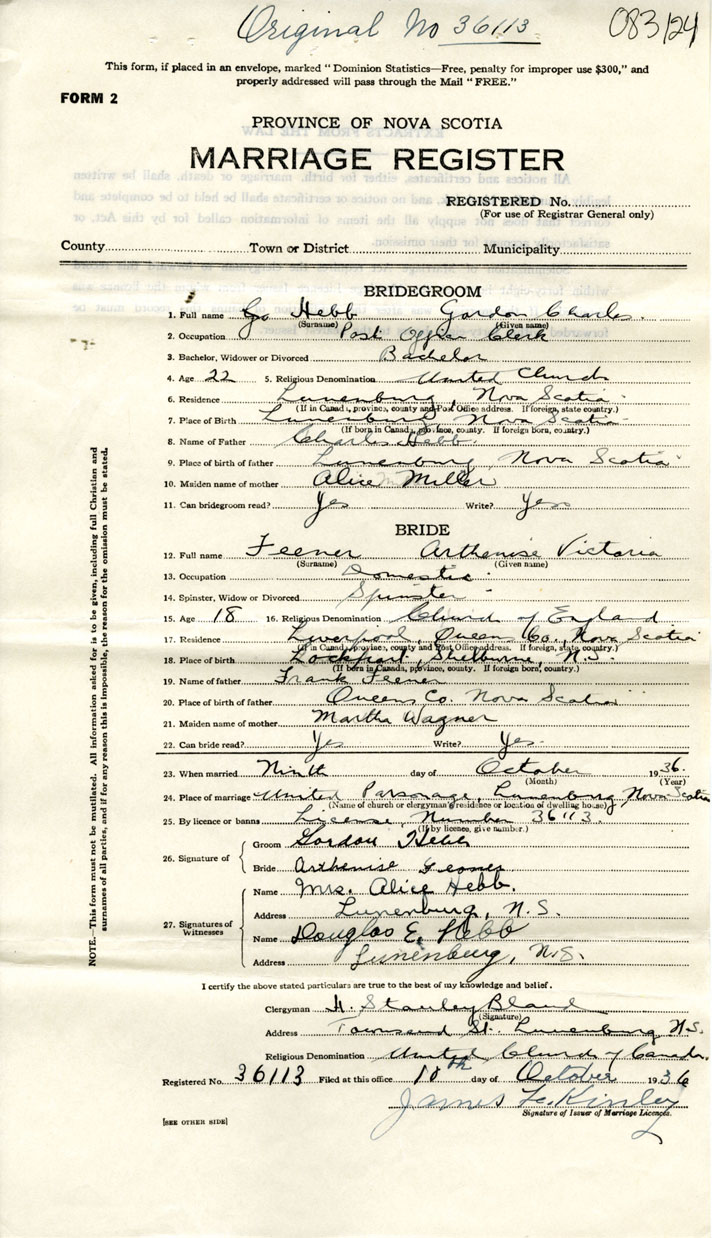 Original No 36113
083124
This form, if placed in an envelope, marked "Dominion Statistics—Free, penalty for improper use $300," and
properly addressed will pass through the Mail "FREE."
FORM 2
PROVINCE OF NOVA SCOTIA
MARRIAGE REGISTER
REGISTERED No.
(For use of Registrar General only)
County Town or District Municipality
BRIDEGROOM
1. Full name Hebb Gordon Charles
(Surname) (Given name)
2. Occupation Post Office Clerk
3. Bachelor, Widower or Divorced Bachelor
4. Age 22 5. Religious Denomination United Church
6. Residence Lunenburg, Nova Scotia
(If in Canada, province, county and Post Office address. If foreign, state country.)
7. Place of Birth Lunenburg, Nova Scotia
(If born in Canada, province, county. If foreign born, country.)
8. Name of Father Charles Hebb
9. Place of birth of father Lunenburg, Nova Scotia
10. Maiden name of mother Alice Miller
11. Can bridegroom read? Yes Write? Yes
BRIDE
12. Full name Feener Arthenise Victoria
(Surname) (Given name)
13. Occupation Domestic
14. Spinster, Widow or Divorced Spinster
15. Age 18 16. Religious Denomination Church of England
17. Residence Liverpool, Queens Co. Nova Scotia
(If in Canada, province, county and Post Office address. If foreign, state country.)
18. Place of birth Lockeport, Shelburne, N.S.
(If born in Canada, province, county. If foreign born, country.)
19. Name of father Frank Feener
20. Place of birth of father Queens Co. Nova Scotia
21. Maiden name of mother Martha Wagner
22. Can bride read? Yes Write? Yes
23. When married Ninth day of October 1936.
(Month) (Year)
24. Place of marriage United Parsonage, Lunenburg Nova Scotia
(Name of church or clergyman's residence or location of dwelling house)
25. By licence or banns License, Number 36113.
(If by licence, give number.)
26. Signature of
Groom Gordon Hebb
Bride Arthenise Feener
27. Signatures of Witnesses
Name Mrs. Alice Hebb.
Address Lunenburg, N.S.
Name Douglas E. Hebb
Address Lunenburg, N.S.
I certify the above stated particulars are true to the best of my knowledge and belief.
Clergyman H. Stanley Bland
(Signature)
Address Townsend St. Lunenburg N.S.
Religious Denomination United Church of Canada.
Registered No. 36113 Filed at this office 10th day of October 1936
James Kinley
Signature of Issuer of Marriage Licences.
[SEE OTHER SIDE]
NOTE.—This form must not be mutilated. All information asked for is to be given, including full Christian and
surnames of all parties, and if for any reason this is impossible, the reason for the omission must be stated.